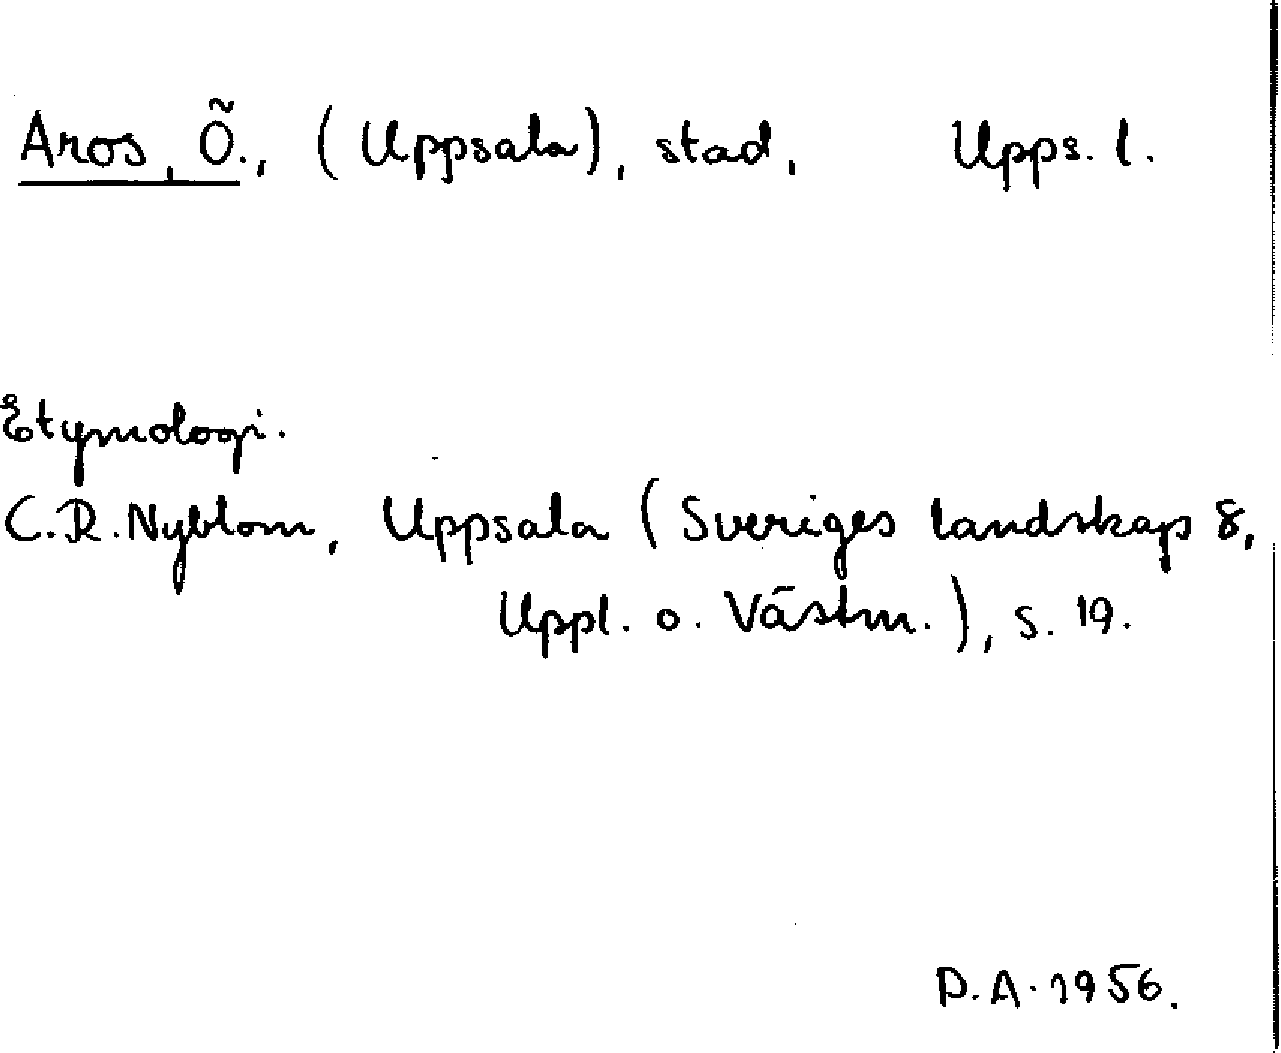 Aros, Ö., (Uppsala), stad, Upps. l.
Etymologi.
C.R. Nyblom, Uppsala (Sveriges landskap 8,
Uppl. o. Västm.), s. 19.
D.A. 1956.